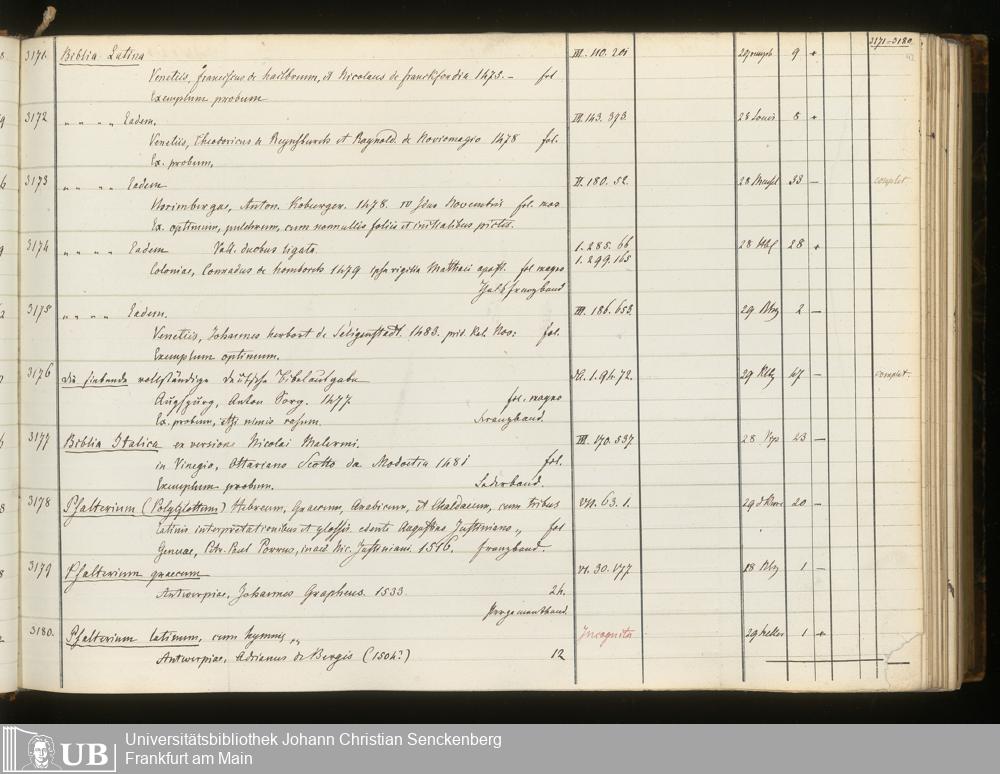 3171-3180
3171. Biblia Latina III. 110. 201 9 +
Venetiis, franciscus de hailbrunn, et Nicolaus de franckfordia 1473.- fol
Exemplum probum
3172 " " " " Eadem. III. 143. 393 28 Louis 8 +
Venetiis, Theodoricus de Reynsburch et Raynold. de Noviomagio 1478 fol.
Ex. probum.
3173 " " " " Eadem II. 180. 52. 33 — complet
Norimbergae, Anton. Koburger. 1478. IV Idus Novembris fol. mag
Ex. optimum, pulchrum, cum nonnullis foliis et initialibus pictis.
3174 " " " " Eadem Voll. duobus ligata. 1. 285. 66 28 28 +
1. 299. 165
Coloniae, Conradus de homborch 1479 ipsa vigilia Matthaei apost. fol magno
Halbfranzband
3175 " " " " Eadem. III. 186. 653 29 2 —
Venetiis, Johannes herbort de Seligenstadt. 1483. prid. Kal. Nov: fol.
Exemplum optimum.
3176 die siebende vollständige deutsche Bibelausgabe 1. 94. 72. 29 47 — complet.
Augspurg, Anton Sorg. 1477. fol. magno
Ex. probum, etsi nimis rasum. Franzband.
3177 Biblia Italica ex versione Nicolai Malermi. III. 170. 537 28 23 —
in Vinegia, Ottaviano Scotto da Modoetia 1481 fol.
Exemplum probum. Lederband.
3178 Psalterium (Polyglottum) Hebreum, Graecum, Arabicum, et Chaldaeum, cum tribus VII. 63. 1. 20 —
latinis interpretationibus et glossis. edente Augustino Justiniano " fol
Genuae, Petr. Paul Porrus, in aed. Nic. Justiniani. 1516. franzband.
3179 Psalterium graecum VI. 30. 177 28 1 —
Antwerpiae, Johannes Grapheus. 1533. 24.
Pergamentband.
3180. Psalterium latinum, cum hymnis " Incognita 29 heller 1 +
Antwerpiae, Adrianus de Bergis (1504?) 12
UB
Universitätsbibliothek Johann Christian Senckenberg
Frankfurt am Main